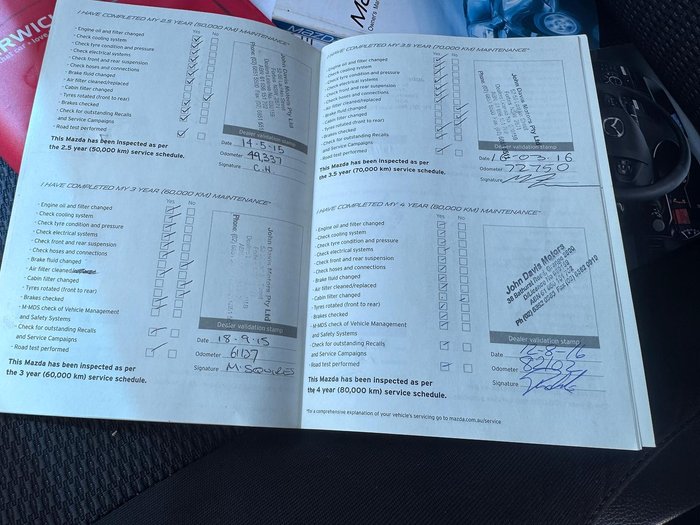 RWICK
Mazda
Owner's Man
I HAVE COMPLETED MY 2.5 YEAR (50,000 KM) MAINTENANCE*
Yes No
- Engine oil and filter changed
- Check cooling system
- Check tyre condition and pressure
- Check electrical systems
- Check front and rear suspension
- Check hoses and connections
- Brake fluid changed
- Air filter cleaned/replaced
- Cabin filter changed
- Tyres rotated (front to rear)
- Brakes checked
- Check for outstanding Recalls
and Service Campaigns
- Road test performed
This Mazda has been inspected as per
the 2.5 year (50,000 km) service schedule.
John Davis Motors Pty Ltd
Dealer validation stamp
Date 14-5-15
Odometer 49,337
Signature C.H.
I HAVE COMPLETED MY 3 YEAR (60,000 KM) MAINTENANCE*
Yes No
- Engine oil and filter changed
- Check cooling system
- Check tyre condition and pressure
- Check electrical systems
- Check front and rear suspension
- Check hoses and connections
- Brake fluid changed
- Air filter cleaned
- Cabin filter changed
- Tyres rotated (front to rear)
- Brakes checked
- M-MDS check of Vehicle Management
and Safety Systems
- Check for outstanding Recalls
and Service Campaigns
- Road test performed
This Mazda has been inspected as per
the 3 year (60,000 km) service schedule.
John Davis Motors Pty Ltd
Dealer validation stamp
Date 18-9-15
Odometer
Signature M. SQUIRES
I HAVE COMPLETED MY 3.5 YEAR (70,000 KM) MAINTENANCE*
Yes No
- Engine oil and filter changed
- Check cooling system
- Check tyre condition and pressure
- Check electrical systems
- Check front and rear suspension
- Check hoses and connections
- Brake fluid changed
- Air filter cleaned/replaced
- Cabin filter changed
- Tyres rotated (front to rear)
- Brakes checked
- Check for outstanding Recalls
and Service Campaigns
- Road test performed
This Mazda has been inspected as per
the 3.5 year (70,000 km) service schedule.
John Davis Motors Pty Ltd
Dealer validation stamp
Date 16-03-16
Odometer 72750
Signature
I HAVE COMPLETED MY 4 YEAR (80,000 KM) MAINTENANCE*
Yes No
- Engine oil and filter changed
- Check cooling system
- Check tyre condition and pressure
- Check electrical systems
- Check front and rear suspension
- Check hoses and connections
- Brake fluid changed
- Air filter cleaned/replaced
- Cabin filter changed
- Tyres rotated (front to rear)
- Brakes checked
- M-MDS check of Vehicle Management
and Safety Systems
- Check for outstanding Recalls
and Service Campaigns
- Road test performed
This Mazda has been inspected as per
the 4 year (80,000 km) service schedule.
John Davis Motors
Dealer validation stamp
Date
Odometer
Signature
*for a comprehensive explanation of your vehicle's servicing go to mazda.com.au/service